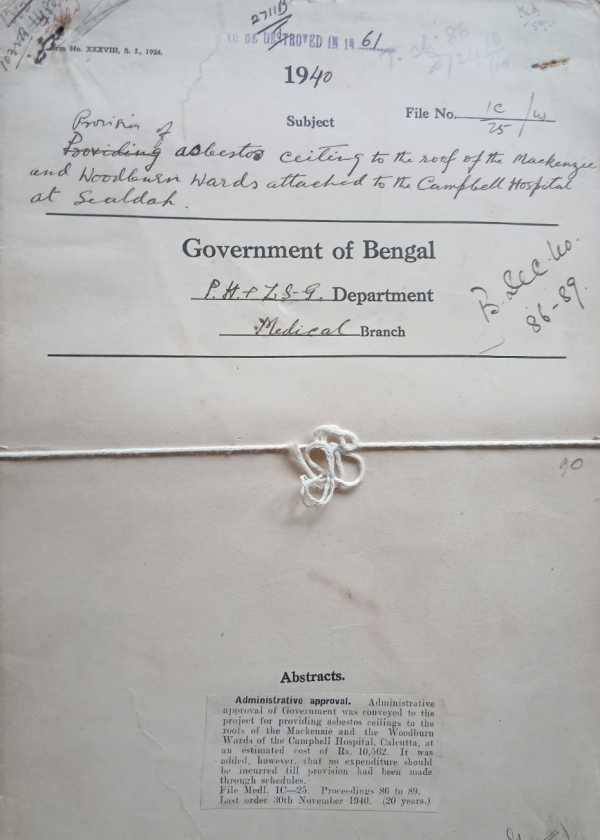 2711B
Form No. XXXVIII, S. I., 1924.
TO BE DESTROYED IN 1961
1940
Subject
File No. 1C/25
Provision of
Providing asbestos ceiling to the roof of the Mackenzie
and Woodburn Wards attached to the Campbell Hospital
at Sealdah.
Government of Bengal
P.H & L.S-G. Department
Medical Branch
B. Dec. 40.
86-89.
90
Abstracts.
Administrative approval. Administrative
approval of Government was conveyed to the
project for providing asbestos ceilings to the
roofs of the Mackenzie and the Woodburn
Wards of the Campbell Hospital, Calcutta, at
an estimated cost of Rs. 10,562. It was
added, however, that no expenditure should
be incurred till provision had been made
through schedules.
File Medl. 1C—25. Proceedings 86 to 89.
Last order 30th November 1940. (20 years.)